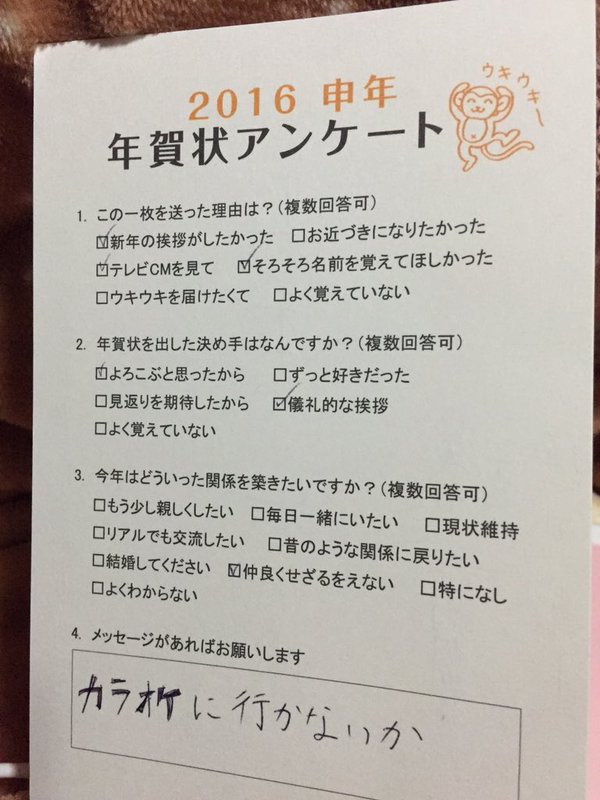 2016 申年
年賀状アンケート
ウキウキー
1. この一枚を送った理由は?(複数回答可)
☑新年の挨拶がしたかった ☐お近づきになりたかった
☑テレビCMを見て ☑そろそろ名前を覚えてほしかった
☐ウキウキを届けたくて ☐よく覚えていない
2. 年賀状を出した決め手はなんですか?(複数回答可)
☑よろこぶと思ったから ☐ずっと好きだった
☐見返りを期待したから ☑儀礼的な挨拶
☐よく覚えていない
3. 今年はどういった関係を築きたいですか?(複数回答可)
☐もう少し親しくしたい ☐毎日一緒にいたい ☐現状維持
☐リアルでも交流したい ☐昔のような関係に戻りたい
☐結婚してください ☑仲良くせざるをえない ☐特になし
☐よくわからない
4. メッセージがあればお願いします
カラオケに行かないか